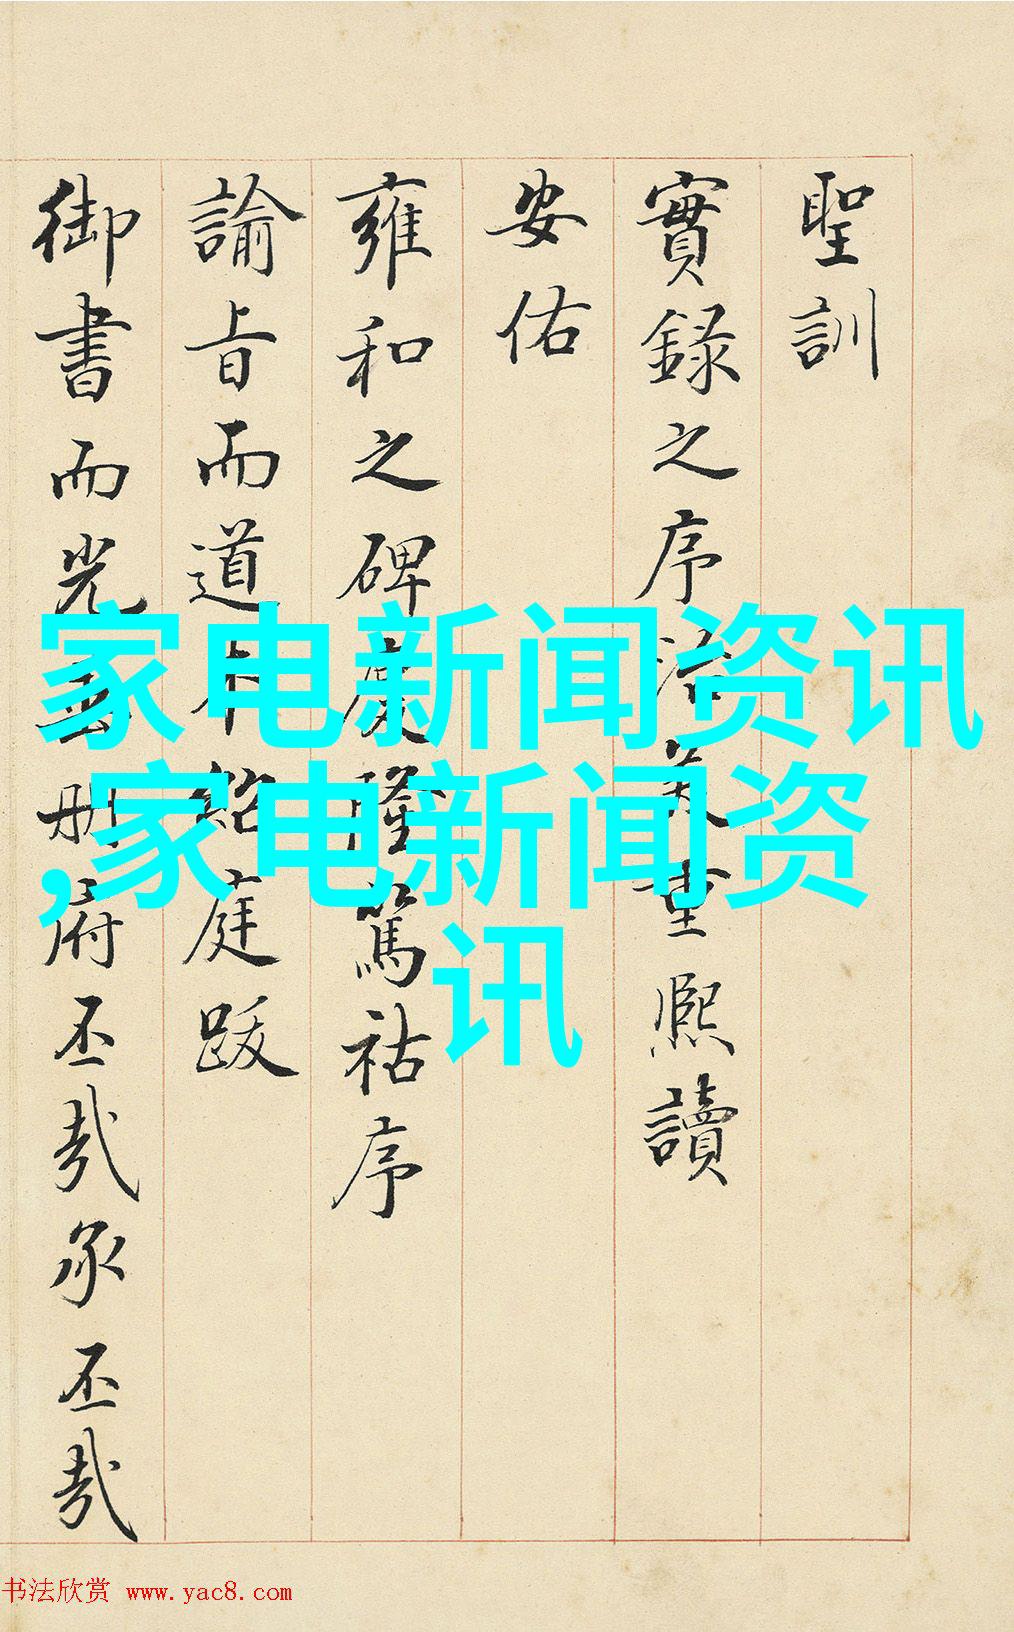 聖訓
實録之序治美重熙讀
安佑
雍和之碑慶隆篤祜序
諭旨而道庭跋
御書而光册府丕哉承丕哉
家电新闻资讯
,家电新闻资
讯
书法欣赏 www.yac8.com